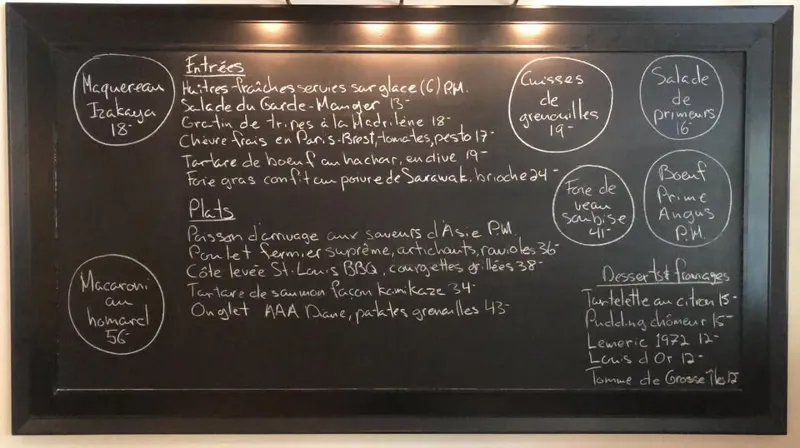 Maquereau
Izakaya
18-
Entrées
Huîtres fraîches servies sur glace (6) P.M.
Salade du Garde-Manger 13-
Gratin de tripes à la Madrilène 18-
Chèvre frais en Paris-Brest, tomates, pesto 17-
Tartare de boeuf au hachoir, endive 19-
Foie gras confit au poivre de Sarawak, brioche 24-
Cuisses
de
grenouilles
19-
Salade
de
primeurs
16-
Foie de
veau
soubise
41-
Boeuf
Prime
Angus
P.M.
Plats
Poisson d'arrivage aux saveurs d'Asie P.M.
Poulet fermier suprême, artichauts, ravioles 36-
Côte levée St-Louis BBQ, courgettes grillées 38-
Tartare de saumon façon kamikaze 34-
Onglet AAA Dane, patates grenailles 43-
Macaroni
au
homard
56-
Desserts & fromages
Tartelette au citron 15-
Pudding chômeur 15-
Lemeric 1972 12-
Louis d'Or 12-
Tomme de Grosse Île 12